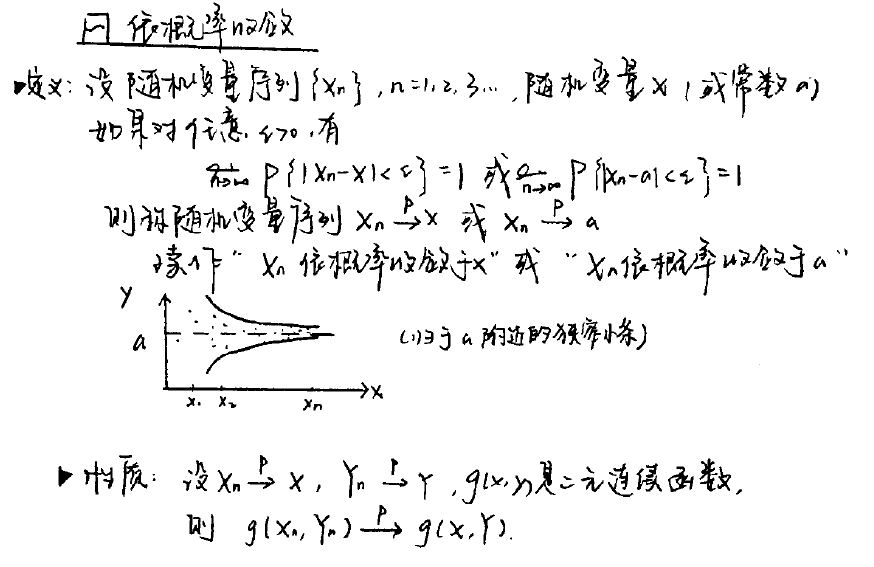 一 依概率收敛
▸定义:设随机变量序列{Xn},n=1,2,3…,随机变量X(或常数a)
如果对任意ε>0,有
lim n→∞ P{|Xn-X|<ε}=1 或 lim n→∞ P{|Xn-a|<ε}=1
则称随机变量序列 Xn →P X 或 Xn →P a
读作"Xn依概率收敛于X"或"Xn依概率收敛于a"
Y
a
附近的狭窄小条)
X₁ X₂ Xn X
▸性质:设Xn →P X, Yn →P Y, g(x,y)是二元连续函数,
则 g(Xn,Yn) →P g(X,Y).